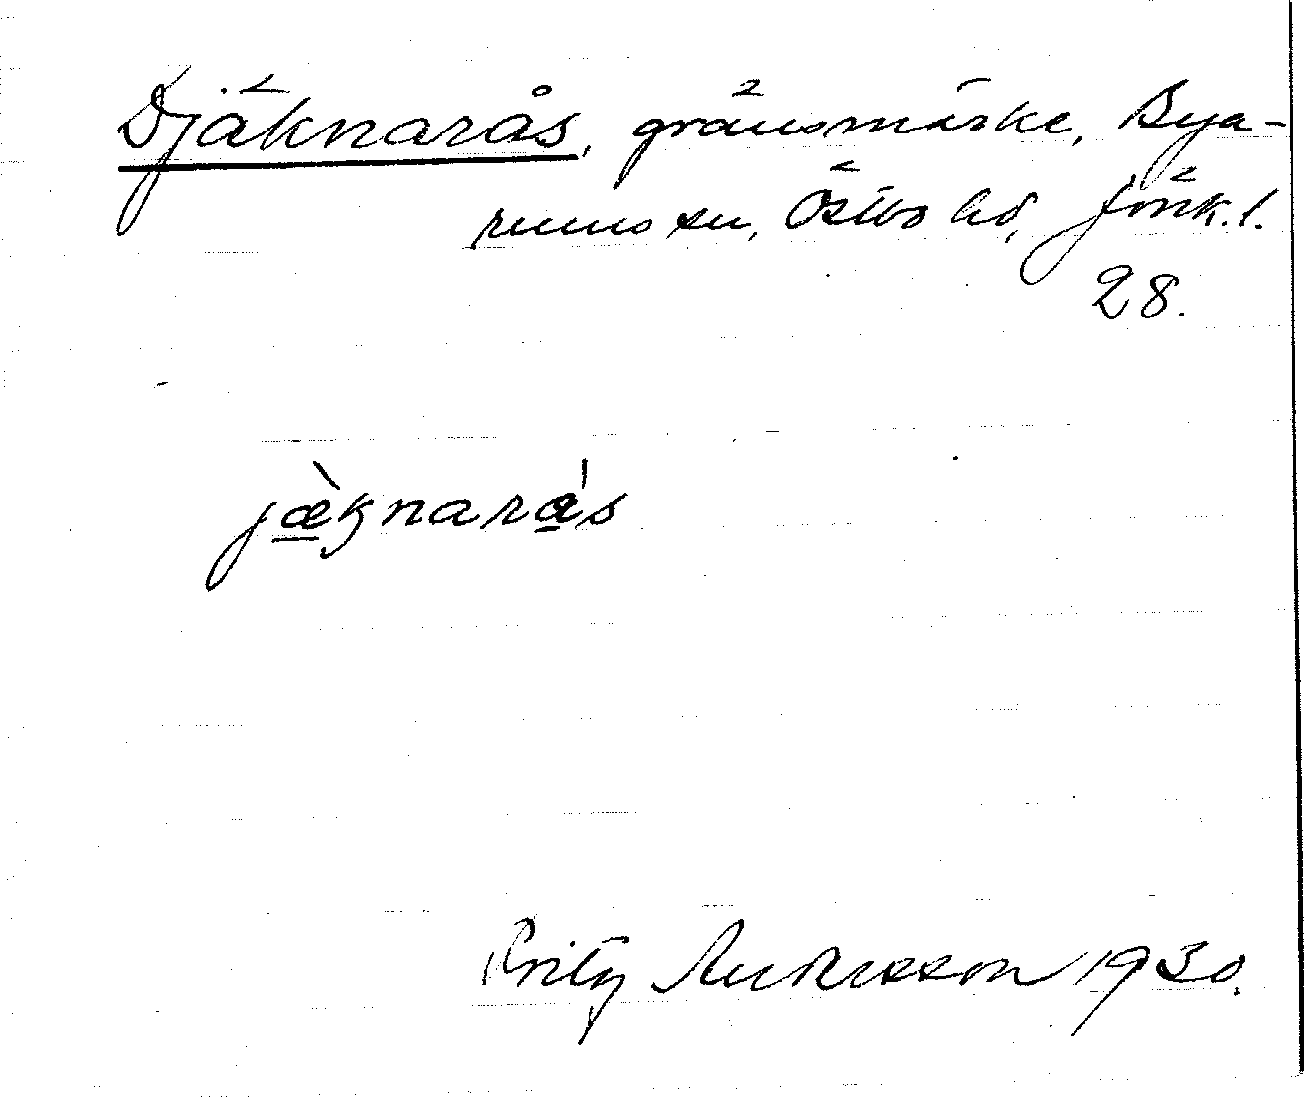 Djäknarås, gränsmärke, Bya-
rums sn, Östbo hd, Jönk. l.
28.
jæ̀knarás
Fritz Andersson 1930.